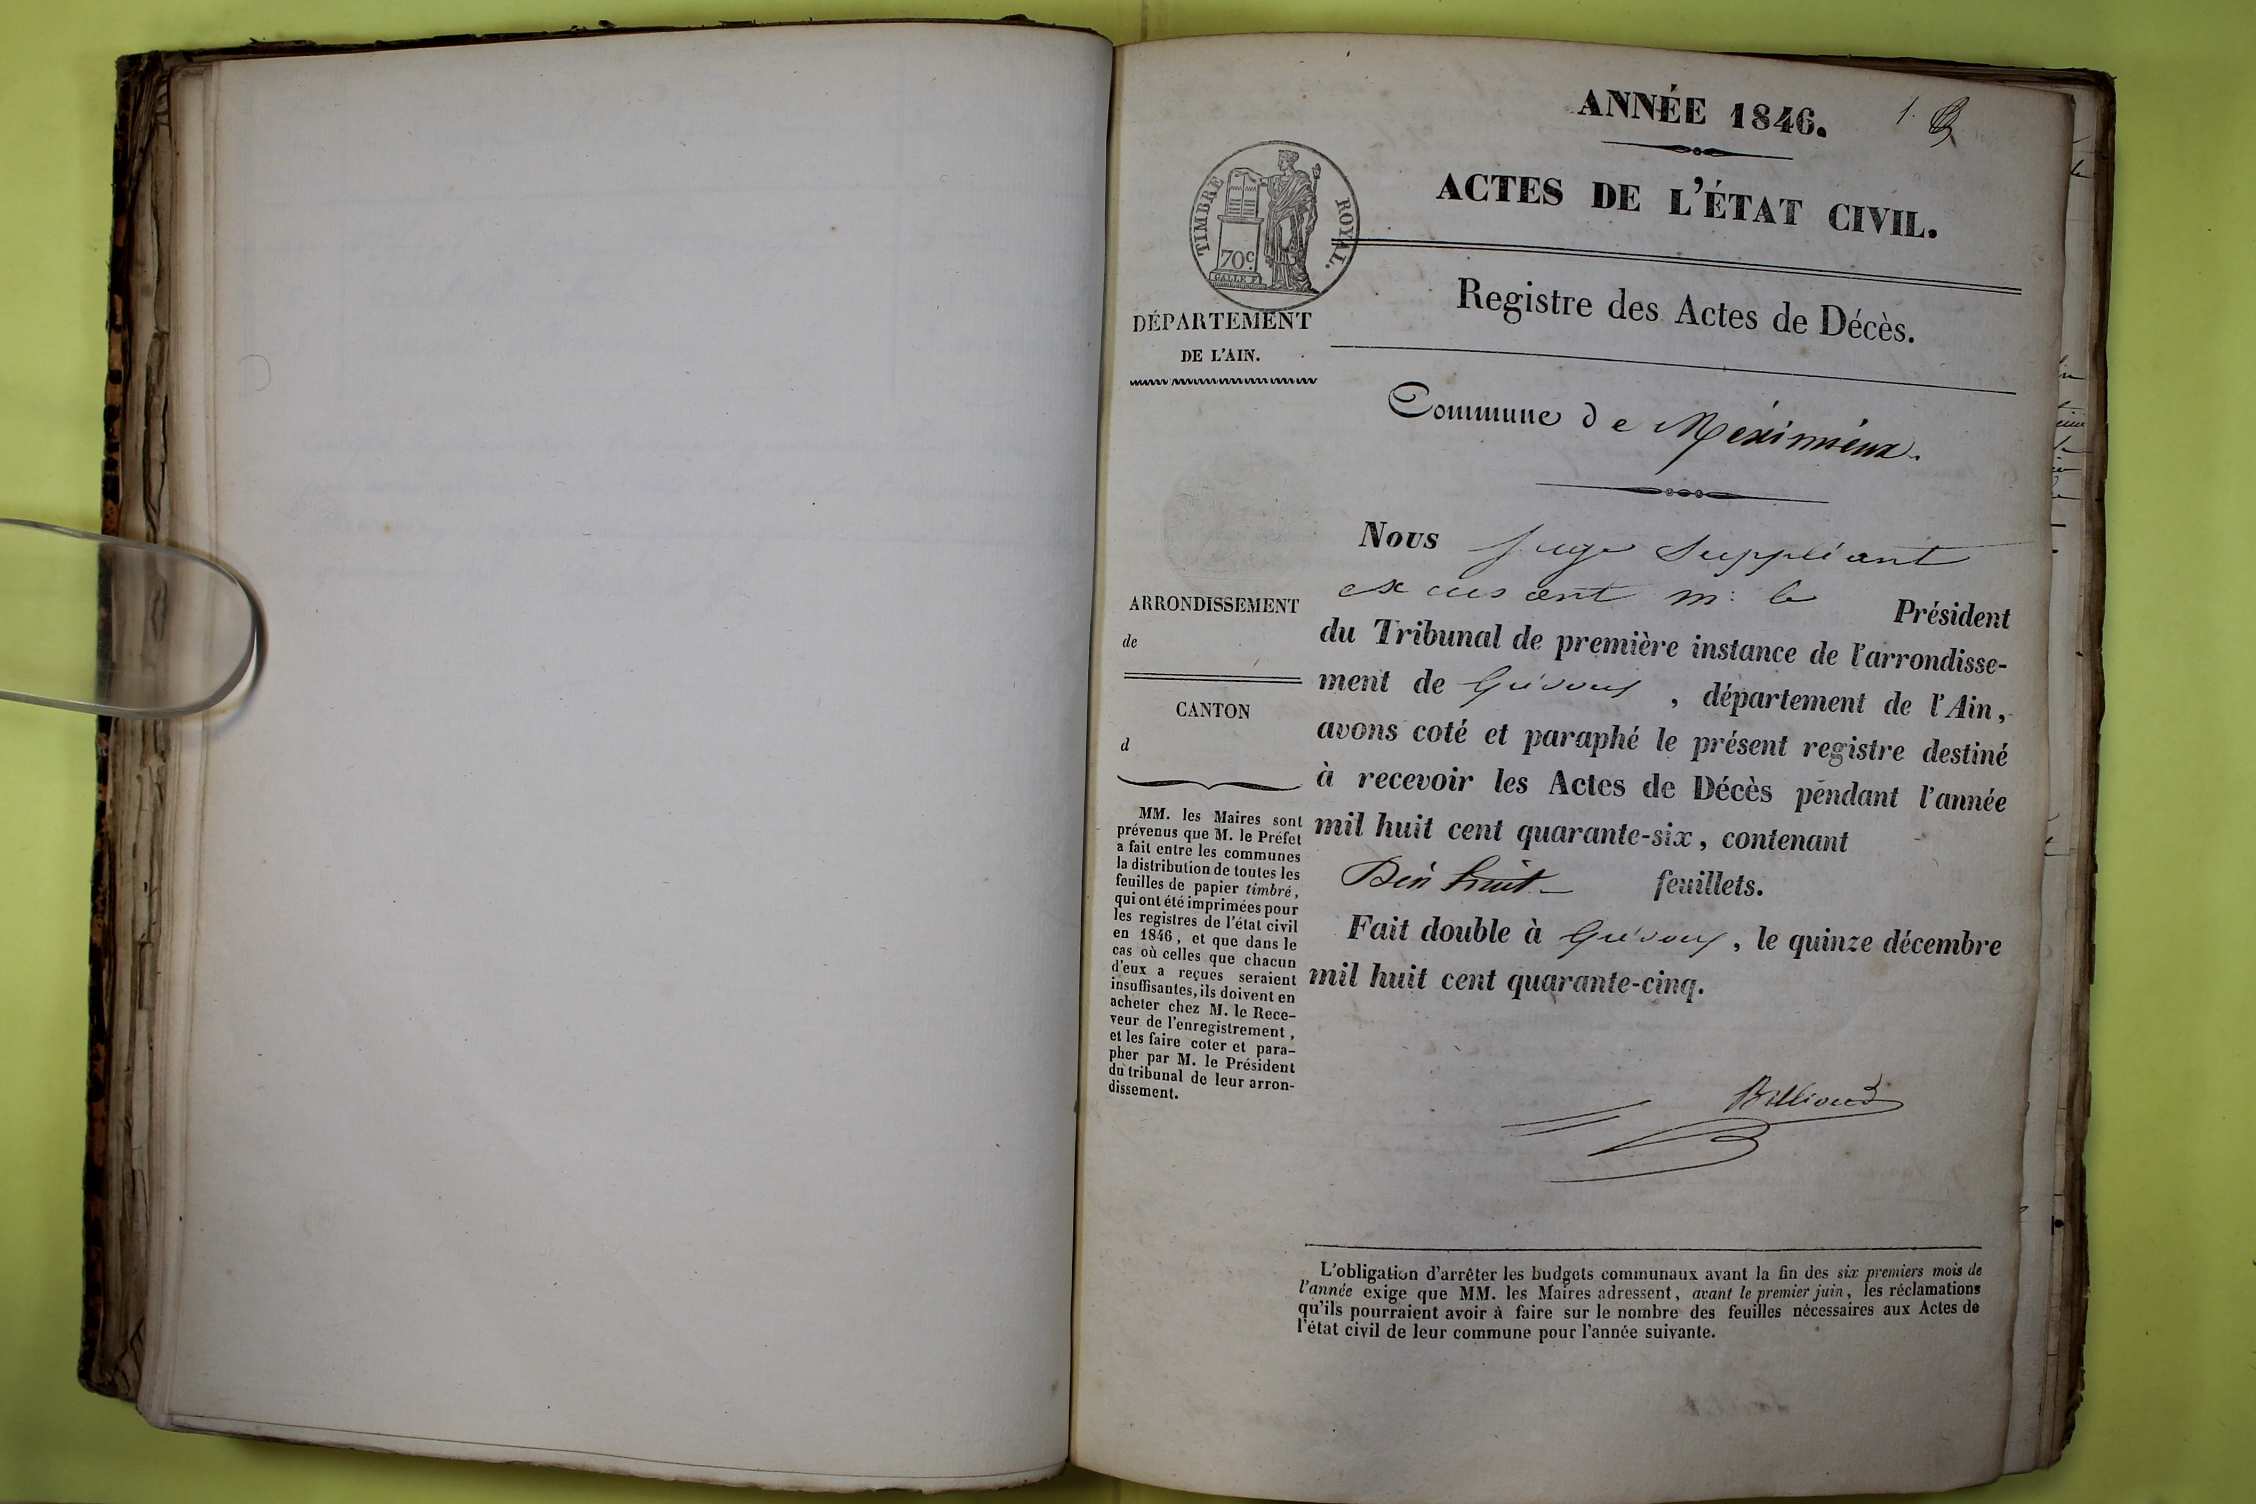 ANNÉE 1846.
1.
ACTES DE L'ÉTAT CIVIL.
TIMBRE ROYAL.
70c
Registre des Actes de Décès.
DÉPARTEMENT
DE L'AIN.
Commune de Méximieux.
Nous juge Suppléant
excusant m: le Président
du Tribunal de première instance de l'arrondisse-
ment de Trévoux, département de l'Ain,
avons coté et paraphé le présent registre destiné
à recevoir les Actes de Décès pendant l'année
mil huit cent quarante-six, contenant
Dix huit feuillets.
Fait double à Trévoux, le quinze décembre
mil huit cent quarante-cinq.
ARRONDISSEMENT
de
CANTON
d
MM. les Maires sont
prévenus que M. le Préfet
a fait entre les communes
la distribution de toutes les
feuilles de papier timbré,
qui ont été imprimées pour
les registres de l'état civil
en 1846, et que dans le
cas où celles que chacun
d'eux a reçues seraient
insuffisantes, ils doivent en
acheter chez M. le Rece-
veur de l'enregistrement,
et les faire coter et para-
pher par M. le Président
du tribunal de leur arron-
dissement.
Billioud
L'obligation d'arrêter les budgets communaux avant la fin des six premiers mois de
l'année exige que MM. les Maires adressent, avant le premier juin, les réclamations
qu'ils pourraient avoir à faire sur le nombre des feuilles nécessaires aux Actes de
l'état civil de leur commune pour l'année suivante.